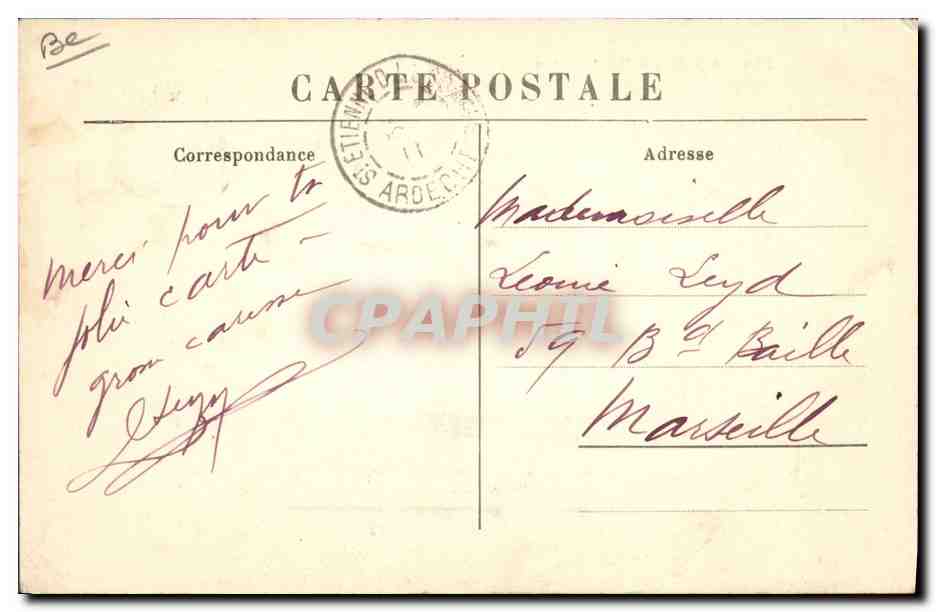 Be
CARTE POSTALE
Correspondance
Adresse
ARDECHE
11
Merci pour ta
jolie carte -
grosse caresse
Mademoiselle
Leonie Leyd
59 Bd Baille
Marseille
CPAPHIL